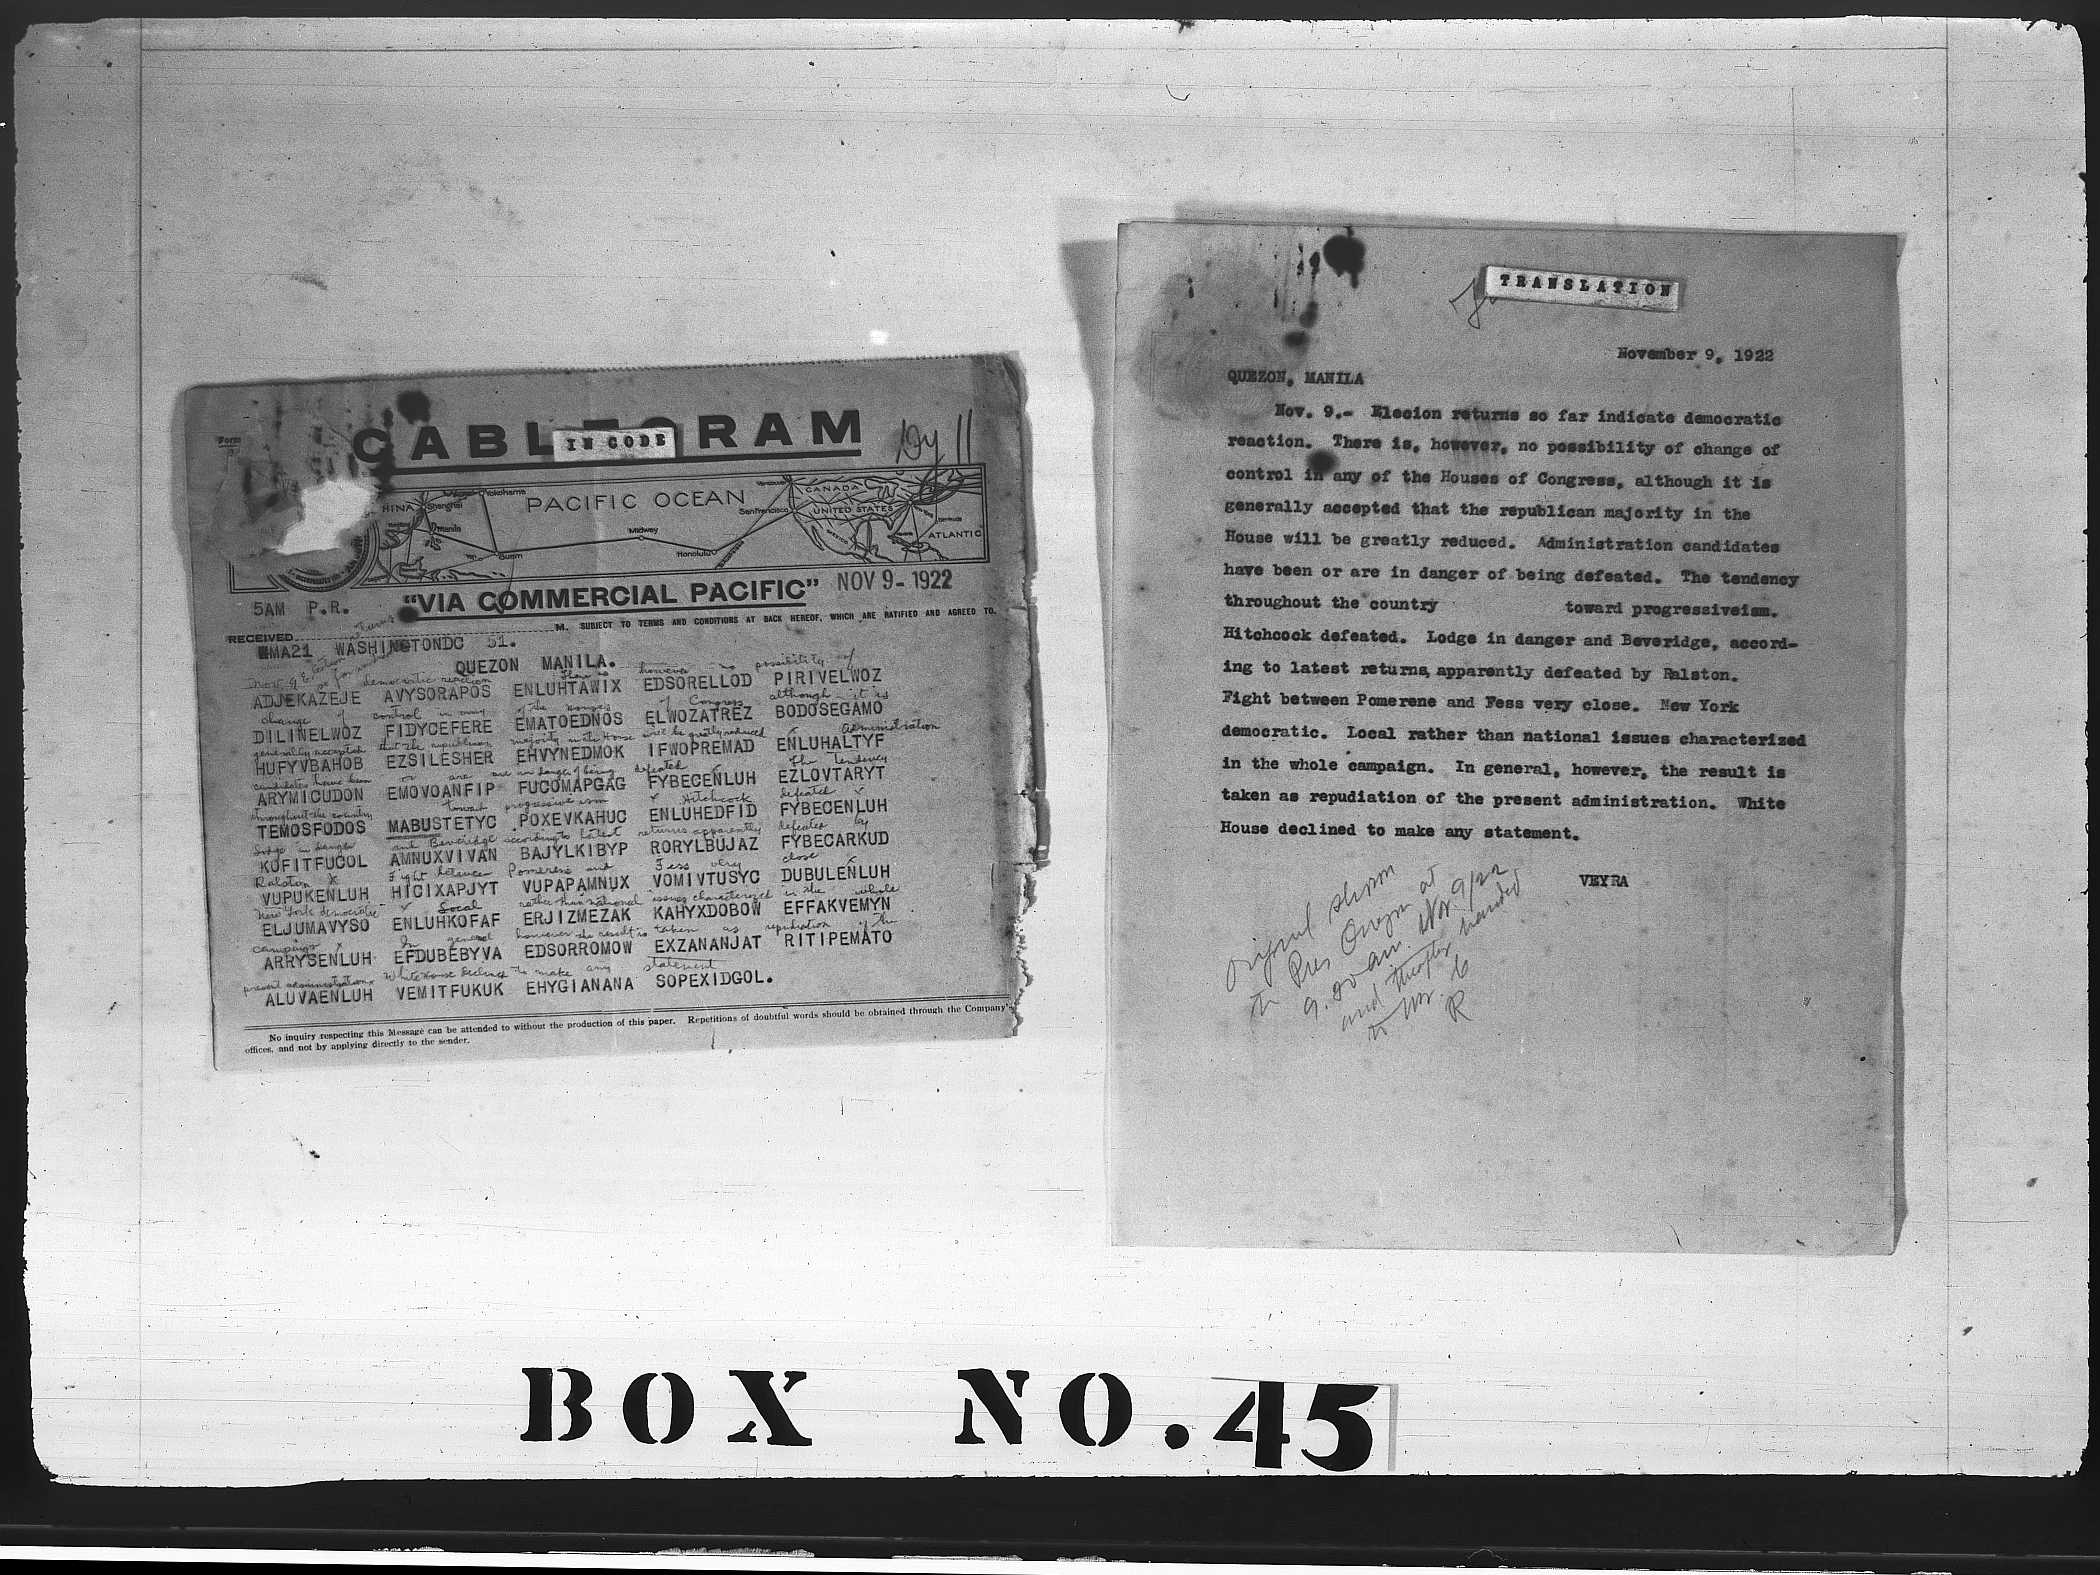 CABLEGRAM
IN CODE
Form
HINA
Yokohama
Shanghai
Manila
Guam
PACIFIC OCEAN
Midway
Honolulu
San Francisco
Vancouver
CANADA
UNITED STATES
MEXICO
ATLANTIC
"VIA COMMERCIAL PACIFIC" NOV 9 - 1922
5AM P.R.
RECEIVED M. SUBJECT TO TERMS AND CONDITIONS AT BACK HEREOF, WHICH ARE RATIFIED AND AGREED TO.
WMA21 WASHINGTONDC 51.
QUEZON MANILA.
Nov. 9 so far democratic reaction There is however no possibility of
ADJEKAZEJE AVYSORAPOS ENLUHTAWIX EDSORELLOD PIRIVELWOZ
change of control in any of the Houses of Congress although it is
DILINELWOZ FIDYCEFERE EMATOEDNOS ELWOZATREZ BODOSEGAMO
generally accepted that the republican majority in the House will be greatly reduced Administration
HUFYVBAHOB EZSILESHER EHVYNEDMOK IFWOPREMAD ENLUHALTYF
candidates have been or are in danger of being defeated The tendency
ARYMICUDON EMOVOANFIP FUCOMAPGAG FYBECENLUH EZLOVTARYT
throughout the country toward progressiveism Hitchcock defeated
TEMOSFODOS MABUSTETYC POXEVKAHUC ENLUHEDFID FYBECENLUH
Lodge in danger and Beveridge according to latest returns apparently defeated by
KOFITFUCOL AMNUXVIVAN BAJYLKIBYP RORYLBUJAZ FYBECARKUD
Ralston Fight between Pomerene and Fess very close
VUPUKENLUH HICIXAPJYT VUPAPAMNUX VOMIVTUSYC DUBULENLUH
New York democratic Local rather than national issues characterized in the whole
ELJUMAVYSO ENLUHKOFAF ERJIZMEZAK KAHYXDOBOW EFFAKVEMYN
campaign In general however the result is taken as repudiation of the
ARRYSENLUH EFDUBEBYVA EDSORROMOW EXZANANJAT RITIPEMATO
present administration White House declined to make any statement
ALUVAENLUH VEMITFUKUK EHYGIANANA SOPEXIDGOL.
No inquiry respecting this Message can be attended to without the production of this paper. Repetitions of doubtful words should be obtained through the Company's
offices, and not by applying directly to the sender.
TRANSLATION
November 9, 1922
QUEZON, MANILA
Nov. 9.- Elecion returns so far indicate democratic
reaction. There is, however, no possibility of change of
control in any of the Houses of Congress, although it is
generally accepted that the republican majority in the
House will be greatly reduced. Administration candidates
have been or are in danger of being defeated. The tendency
throughout the country toward progressiveism.
Hitchcock defeated. Lodge in danger and Beveridge, accord-
ing to latest returns, apparently defeated by Ralston.
Fight between Pomerene and Fess very close. New York
democratic. Local rather than national issues characterized
in the whole campaign. In general, however, the result is
taken as repudiation of the present administration. White
House declined to make any statement.
VEYRA
Original shown
to Pres Quezon at
9.00 am Nov. 9/22
and thereafter handed
to Mr.
R
BOX NO. 45